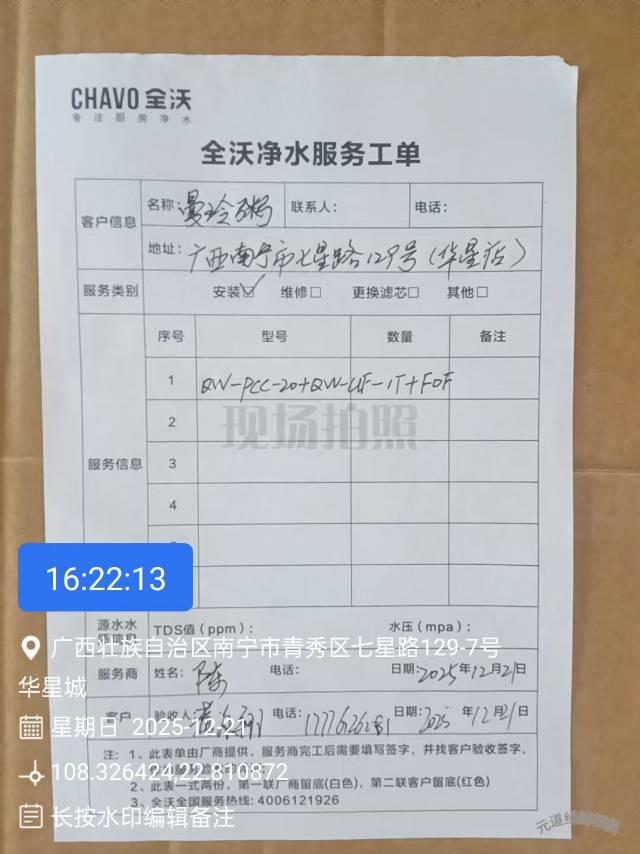 CHAVO 全沃
专注厨房净水
全沃净水服务工单
客户信息
名称：曼玲粥
联系人：
电话：
地址：广西南宁市七星路129号（华星店）
服务类别
安装☑ 维修□ 更换滤芯□ 其他□
服务信息
序号 型号 数量 备注
1 QW-PCC-20+QW-UF-1T+FOF
2
现场拍照
3
4
16:22:13
源水水
TDS值（ppm）：
水压（mpa）：
广西壮族自治区南宁市青秀区七星路129-7号
华星城
服务商 姓名：陈 电话： 日期：2025年12月21日
客户 验收人 电话： 日期：2025年12月21日
星期日 2025-12-21
注：1、此表单由厂商提供，服务商完工后需要填写签字，并找客户验收签字，
108.326424,22.810872
2、此表一式两份，第一联厂商留底(白色)，第二联客户留底(红色)
3、全沃全国服务热线：4006121926
长按水印编辑备注